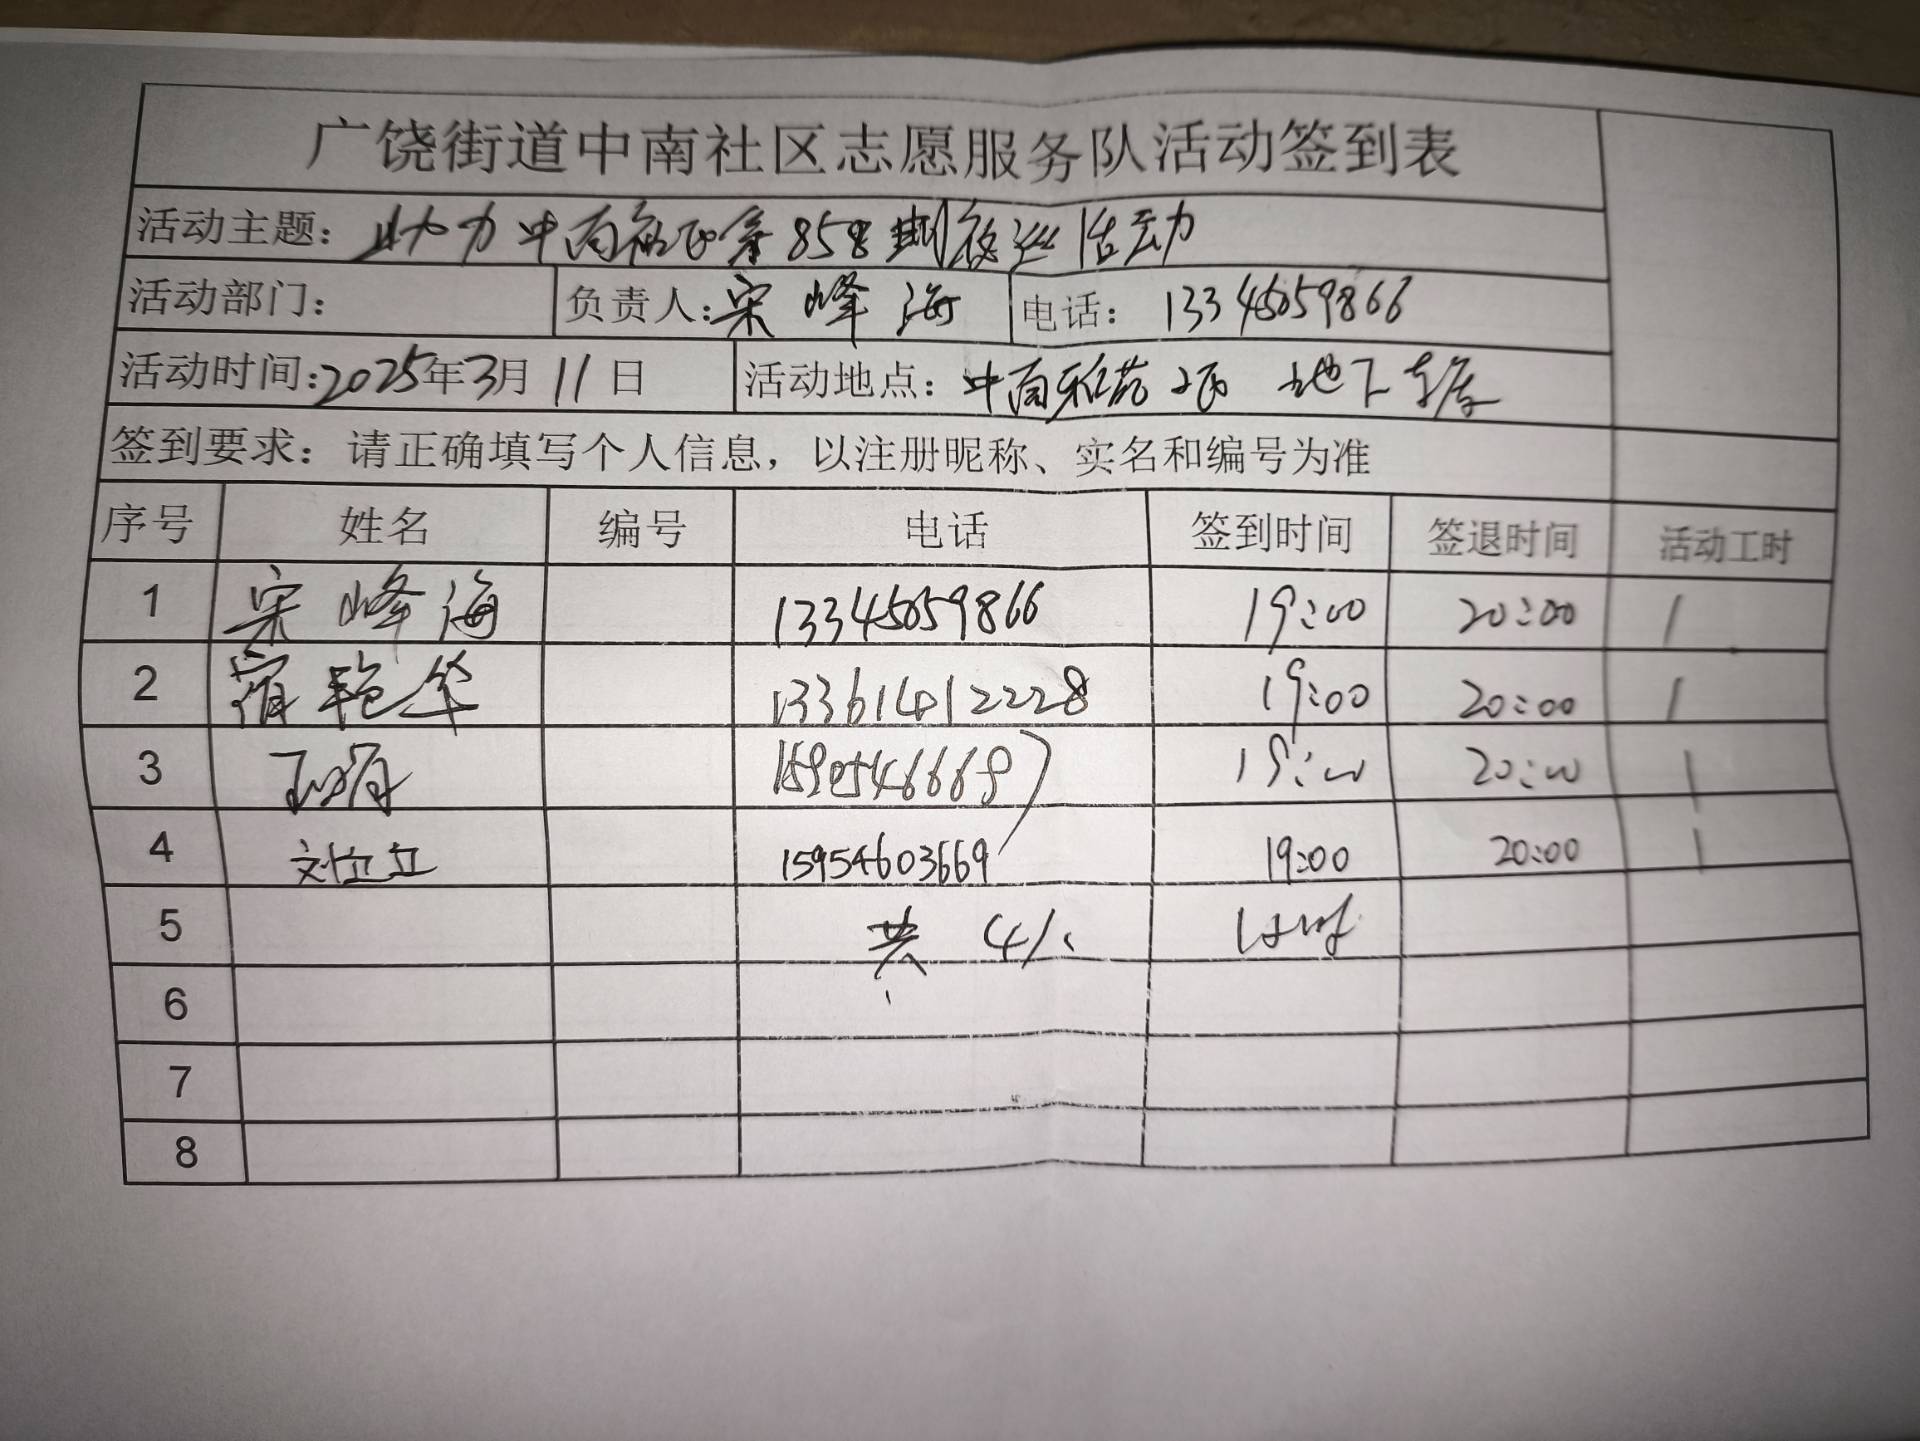 广饶街道中南社区志愿服务队活动签到表
活动主题：助力中南 第858期夜巡活动
活动部门： 负责人：宋峰海 电话：13345059866
活动时间：2025年3月11日 活动地点：中南雅苑 地下车库
签到要求：请正确填写个人信息，以注册昵称、实名和编号为准
序号 姓名 编号 电话 签到时间 签退时间 活动工时
1 宋峰海 13345059866 19:00 20:00 1
2 宿艳华 13361412228 19:00 20:00 1
3 19:00 20:00 1
4 刘立立 15954603669 19:00 20:00 1
5 共 4人
6
7
8